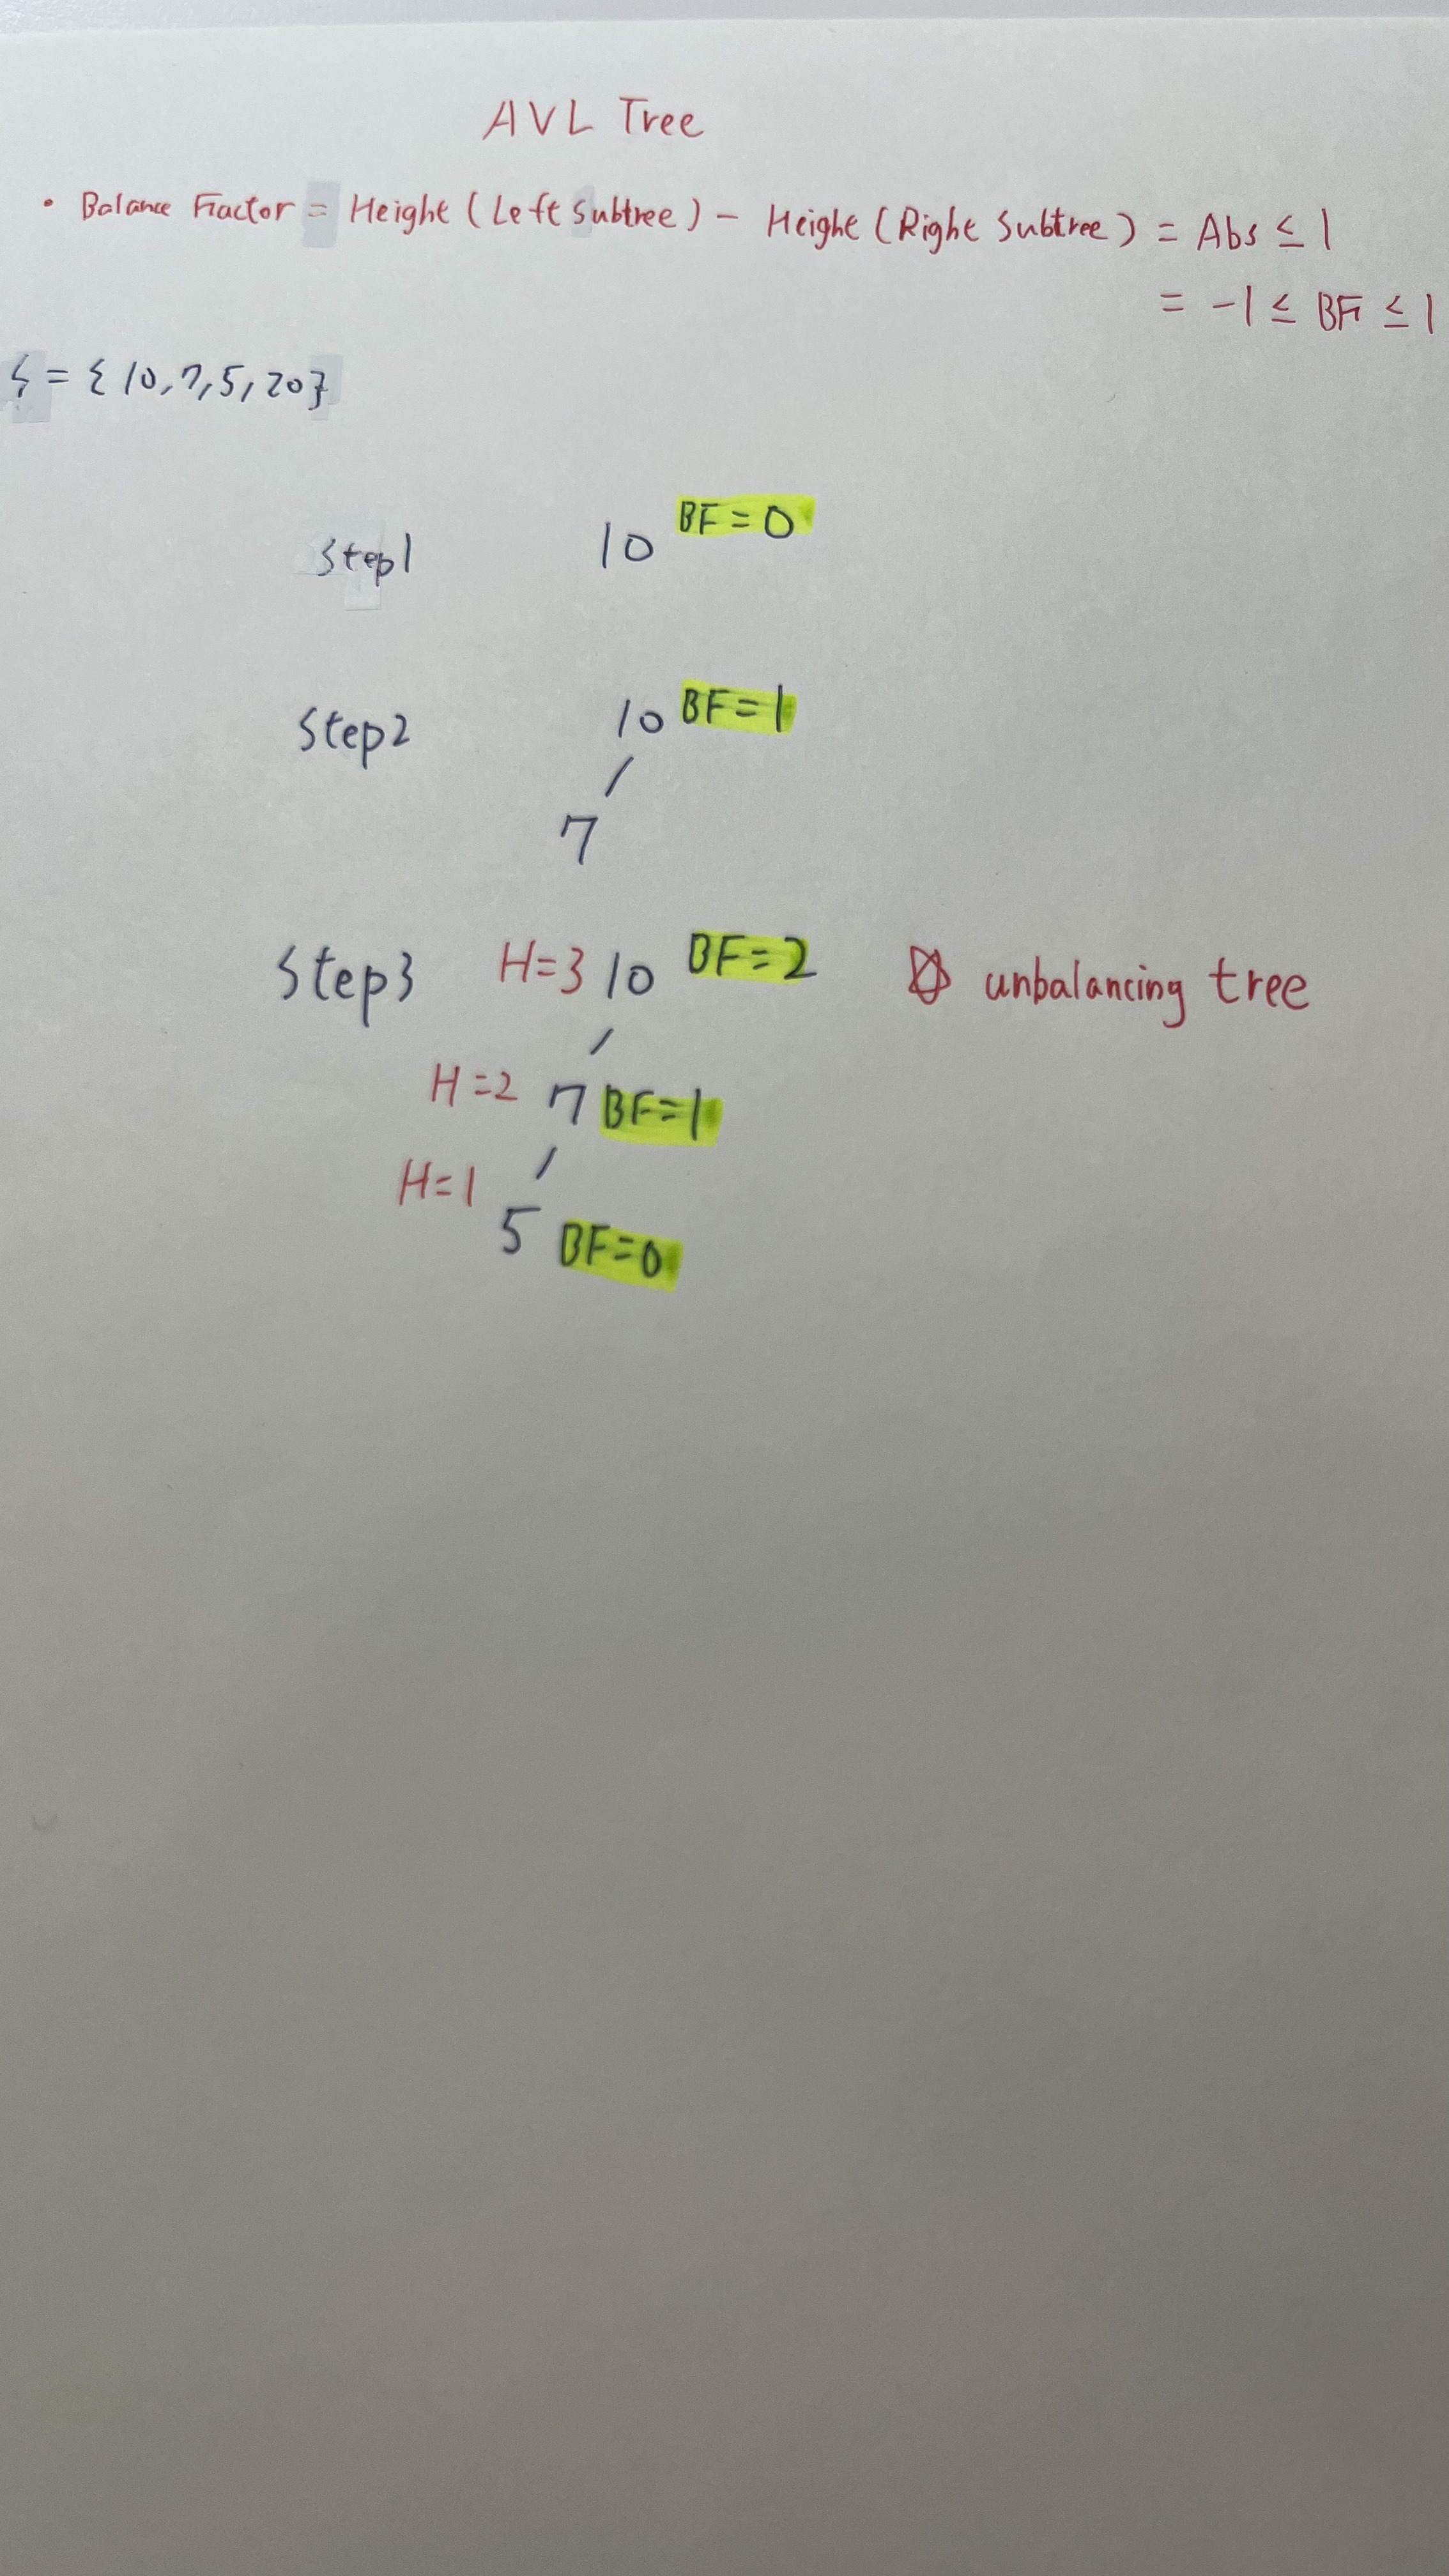 AVL Tree
• Balance Factor = Height (Left Subtree) - Height (Right Subtree) = Abs ≤ 1
= -1 ≤ BF ≤ 1
S = {10, 7, 5, 20}
Step1 10 BF=0
Step2 10 BF=1
/
7
Step3 H=3 10 BF=2 ☆ unbalancing tree
/
H=2 7 BF=1
/
H=1 5 BF=0